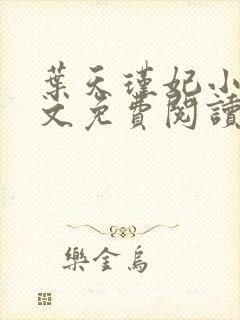 葉天瑾妃小
文免費閱讀
樂金烏